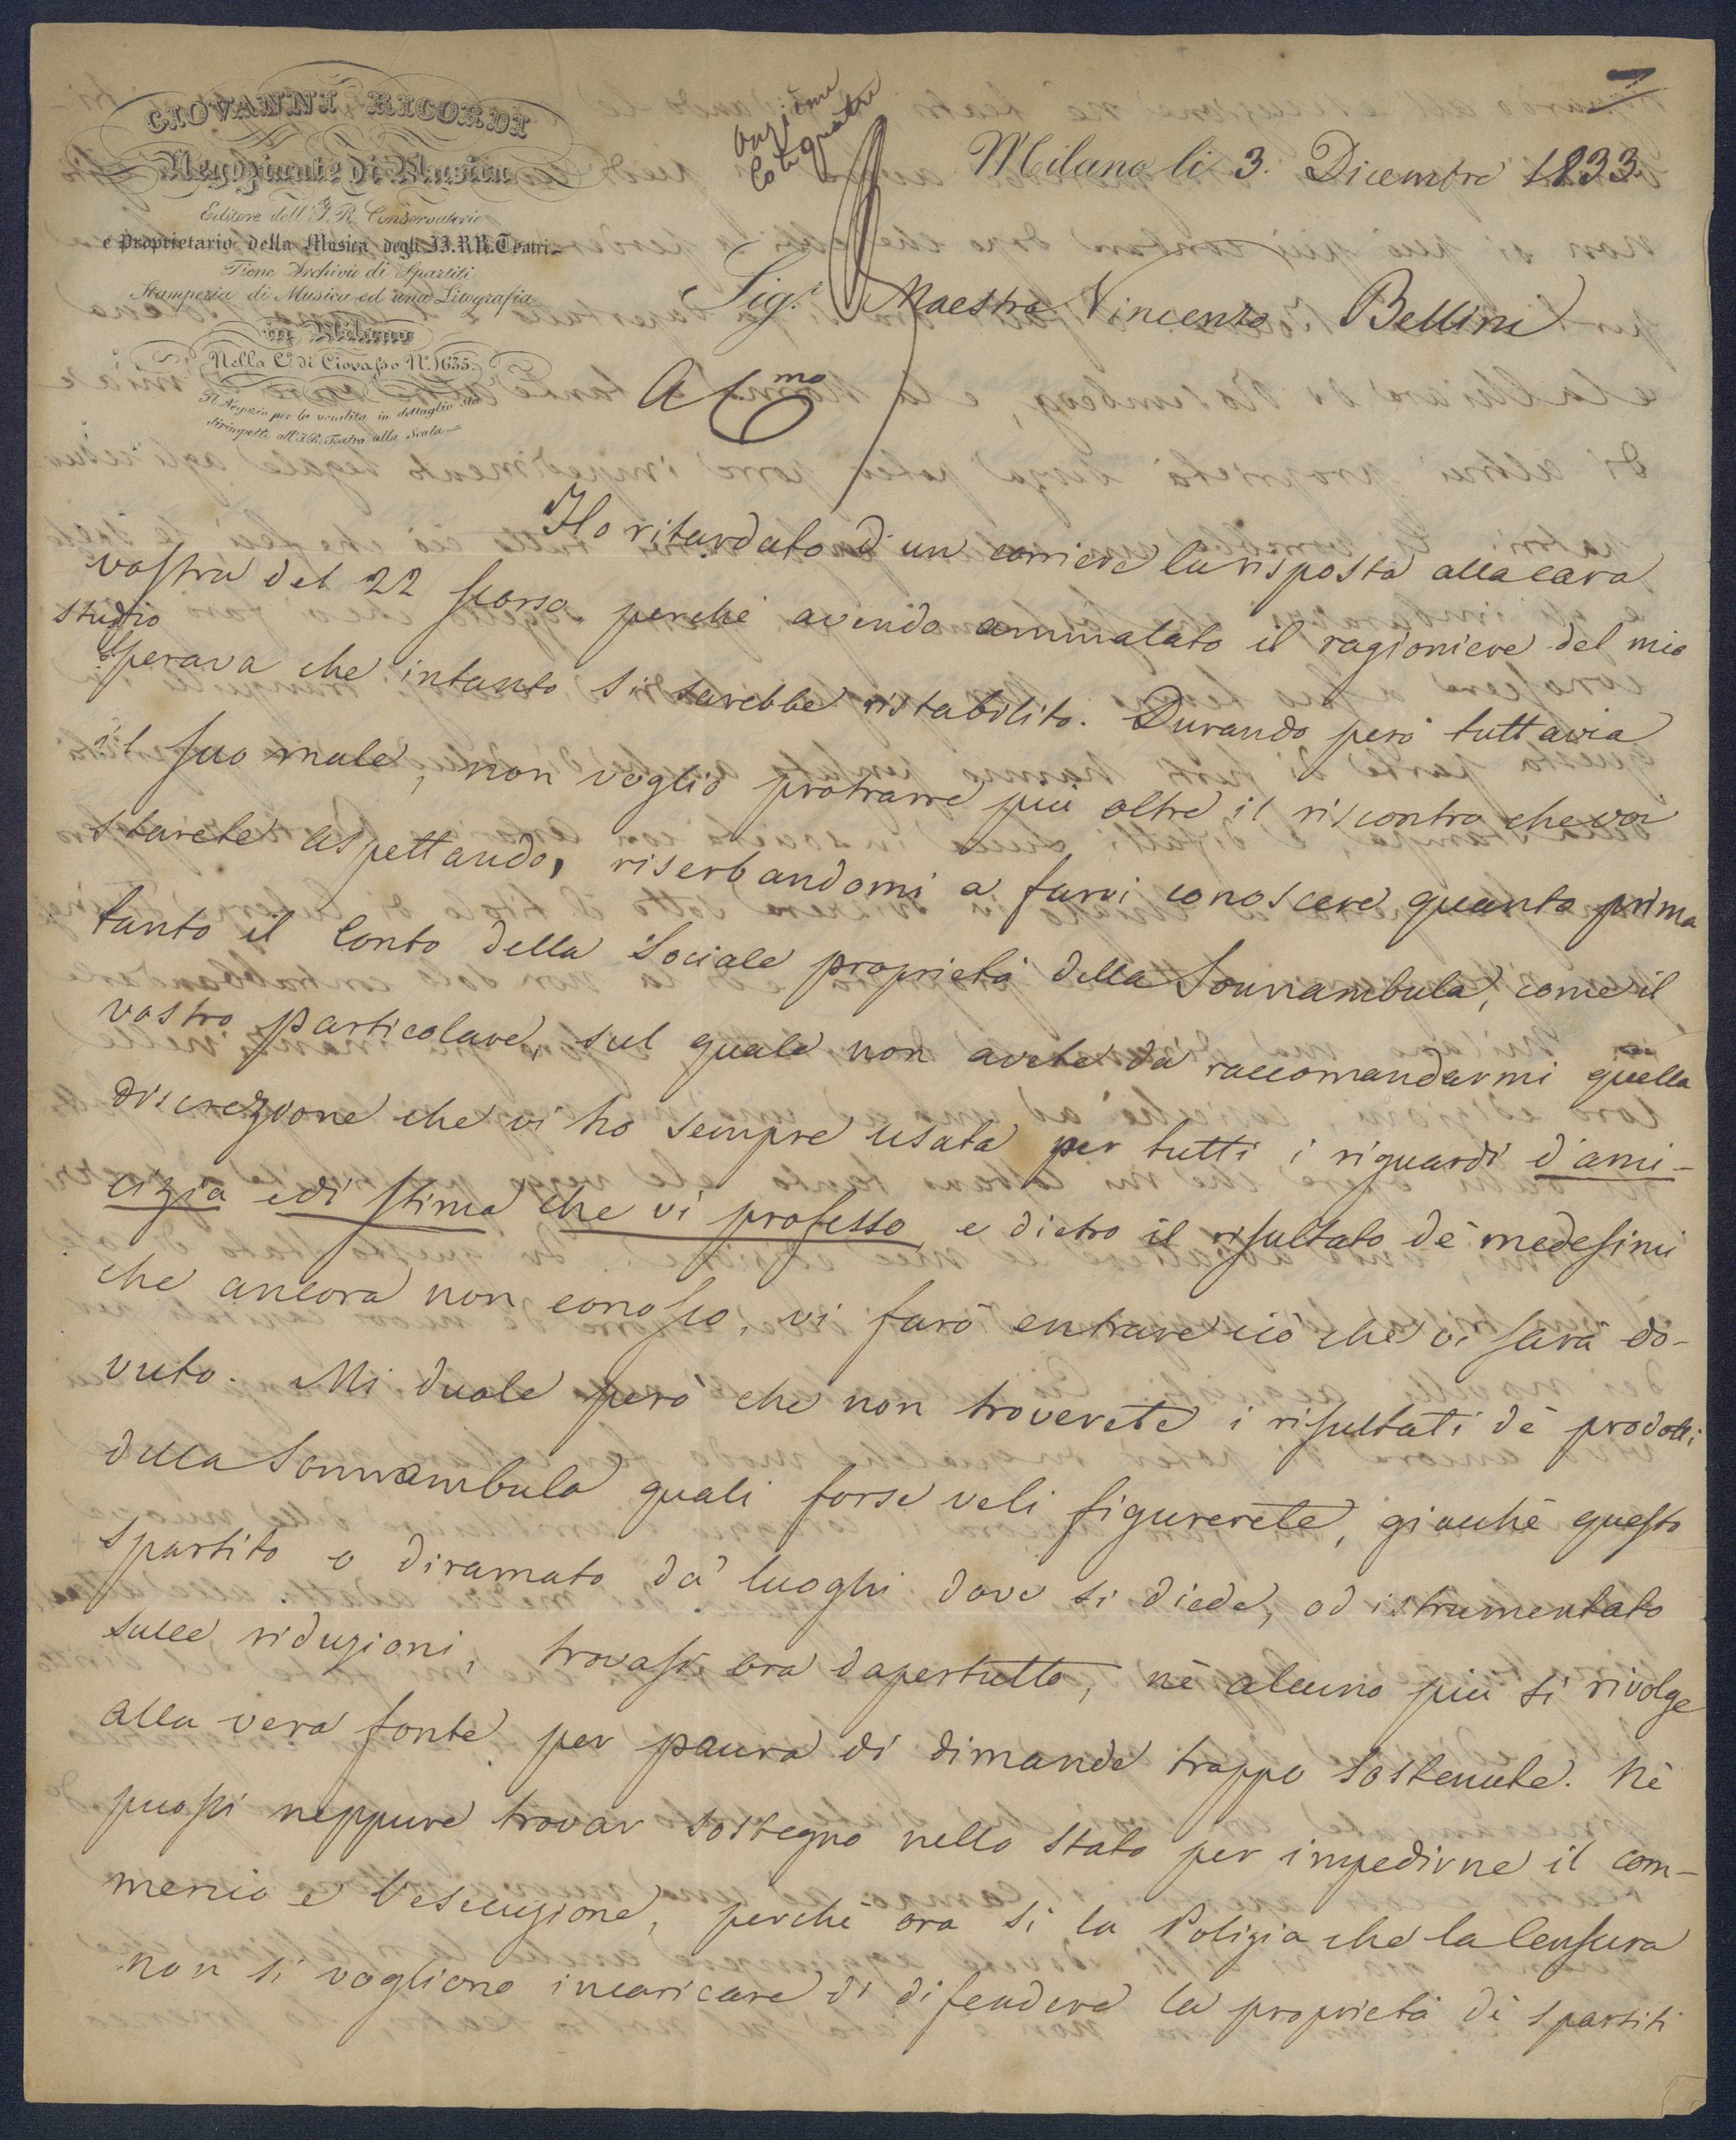 GIOVANNI RICORDI
Negoziante di Musica
Editore dell'I. R. Conservatorio
e Proprietario della Musica degli II. RR. Teatri
Tiene Archivio di Spartiti
Stamperia di Musica ed una Litografia
in Milano
Nella C.a di Ciovasso N.º 1635.
Il Negozio per la vendita in dettaglio sta
dirimpetto all'I. R. Teatro alla Scala
Milano li 3. Dicembre 1833.
Sig.r Maestro Vincenzo Bellini
A C.mo
Ho ritardato d'un corriere la risposta alla cara
vostra del 22 scorso perchè avendo ammalato il ragioniere del mio
studio
sperava che intanto si sarebbe ristabilito. Durando però tuttavia
il suo male, non voglio protrarre più oltre il riscontro che voi
starete aspettando, riserbandomi a farvi conoscere quanto prima
tanto il Conto della Sociale proprietà della Sonnambula, come il
vostro particolare, sul quale non avete da raccomandarmi quella
discrezione che vi ho sempre usata per tutti i riguardi d'ami-
cizia e di stima che vi professo, e dietro il risultato de' medesimi
che ancora non conosco, vi farò entrare ciò che vi sarà do-
vuto. Mi duole però che non troverete i risultati de' prodotti
della Sonnambula quali forse veli figurerete, giacchè questo
spartito o diramato da' luoghi dove si diede, od istrumentato
sulle riduzioni, trovasi ora dapertutto, nè alcuno più si rivolge
alla vera fonte per paura di dimande troppo sostenute. Nè
puossi neppure trovar sostegno nello stato per impedirne il com-
mercio e l'esecuzione, perchè ora sì la Polizia che la Censura
non si vogliono incaricare di difendere la proprietà di spartiti